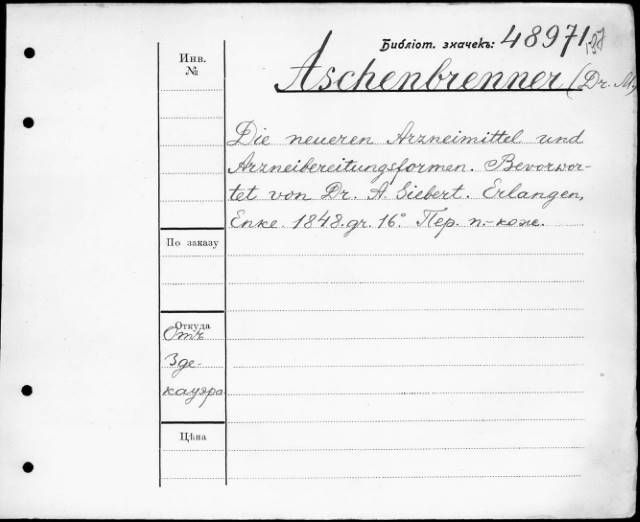 Библіот. значекъ: 48971
Инв.
№
Aschenbrenner (Dr. M.)
Die neueren Arzneimittel und
Arzneibereitungsformen. Bevorwor-
tet von Dr. A. Siebert. Erlangen,
Enke. 1848. gr. 16°. Пер. п.-кож.
По заказу
Откуда
Отъ
Зде-
кауэра
Цѣна